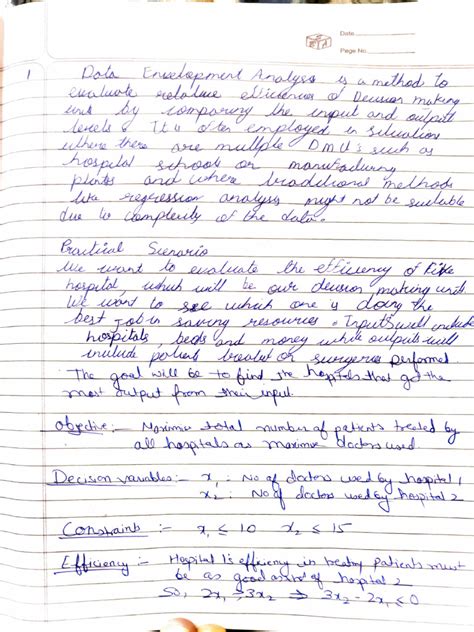 Date
Page No.
1 Data Envelopment Analysis is a method to
evaluate relative efficiencies of Decision making
unit by comparing the input and output
levels. It is often employed in situations
where there are multiple DMU's such as
hospital schools or manufacturing
plants and where traditional methods
like regression analysis might not be suitable
due to complexity of the data.
Practical Scenario
We want to evaluate the efficiency of five
hospital, which will be our decision making units.
We want to see which one is doing the
best job in saving resources. Inputs will include
hospitals, beds and money while outputs will
include patient treated or surgeries performed
The goal will be to find the hospitals that get the
most output from their input.
Objective :- Maximize total number of patients treated by
all hospitals as maximize doctors used.
Decision variables :- x₁ : No of doctors used by hospital 1
x₂ : No of doctors used by hospital 2
Constraints :- x₁ ≤ 10 x₂ ≤ 15
Efficiency :- Hospital 1's efficiency in treating patients must
be as good as of hospital 2
So, 2x₁ ≥ 3x₂ ⇒ 3x₂ - 2x₁ ≤ 0